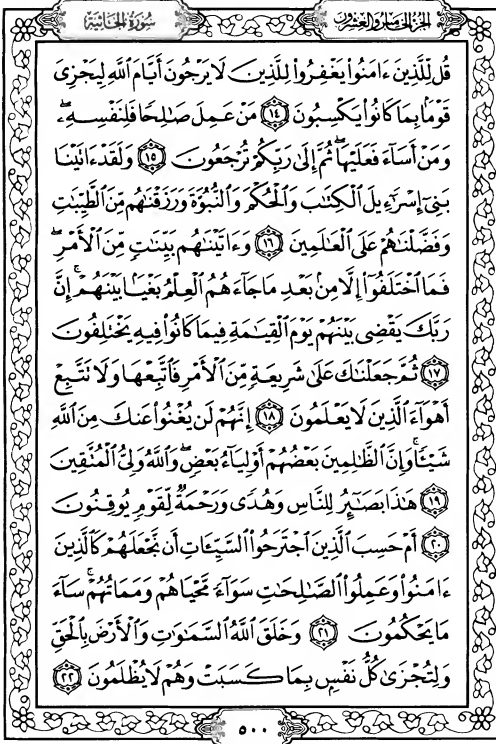 سُورَةُ الْجَاثِيَةِ
الجزء الخامس والعشرون
قُل لِّلَّذِينَ ءَامَنُوا۟ يَغْفِرُوا۟ لِلَّذِينَ لَا يَرْجُونَ أَيَّامَ اللَّهِ لِيَجْزِىَ
قَوْمًۢا بِمَا كَانُوا۟ يَكْسِبُونَ ١٤ مَنْ عَمِلَ صَـٰلِحًا فَلِنَفْسِهِۦ ۖ
وَمَنْ أَسَآءَ فَعَلَيْهَا ۖ ثُمَّ إِلَىٰ رَبِّكُمْ تُرْجَعُونَ ١٥ وَلَقَدْ ءَاتَيْنَا
بَنِىٓ إِسْرَٰٓءِيلَ الْكِتَـٰبَ وَالْحُكْمَ وَالنُّبُوَّةَ وَرَزَقْنَـٰهُم مِّنَ الطَّيِّبَـٰتِ
وَفَضَّلْنَـٰهُمْ عَلَى الْعَـٰلَمِينَ ١٦ وَءَاتَيْنَـٰهُم بَيِّنَـٰتٍ مِّنَ الْأَمْرِ ۖ
فَمَا اخْتَلَفُوٓا۟ إِلَّا مِنۢ بَعْدِ مَا جَآءَهُمُ الْعِلْمُ بَغْيًۢا بَيْنَهُمْ ۚ إِنَّ
رَبَّكَ يَقْضِى بَيْنَهُمْ يَوْمَ الْقِيَـٰمَةِ فِيمَا كَانُوا۟ فِيهِ يَخْتَلِفُونَ
١٧ ثُمَّ جَعَلْنَـٰكَ عَلَىٰ شَرِيعَةٍ مِّنَ الْأَمْرِ فَاتَّبِعْهَا وَلَا تَتَّبِعْ
أَهْوَآءَ الَّذِينَ لَا يَعْلَمُونَ ١٨ إِنَّهُمْ لَن يُغْنُوا۟ عَنكَ مِنَ اللَّهِ
شَيْـًٔا ۚ وَإِنَّ الظَّـٰلِمِينَ بَعْضُهُمْ أَوْلِيَآءُ بَعْضٍ ۖ وَاللَّهُ وَلِىُّ الْمُتَّقِينَ
١٩ هَـٰذَا بَصَـٰٓئِرُ لِلنَّاسِ وَهُدًى وَرَحْمَةٌ لِّقَوْمٍ يُوقِنُونَ
٢٠ أَمْ حَسِبَ الَّذِينَ اجْتَرَحُوا۟ السَّيِّـَٔاتِ أَن نَّجْعَلَهُمْ كَالَّذِينَ
ءَامَنُوا۟ وَعَمِلُوا۟ الصَّـٰلِحَـٰتِ سَوَآءً مَّحْيَاهُمْ وَمَمَاتُهُمْ ۚ سَآءَ
مَا يَحْكُمُونَ ٢١ وَخَلَقَ اللَّهُ السَّمَـٰوَٰتِ وَالْأَرْضَ بِالْحَقِّ
وَلِتُجْزَىٰ كُلُّ نَفْسٍۭ بِمَا كَسَبَتْ وَهُمْ لَا يُظْلَمُونَ ٢٢
٥٠٠